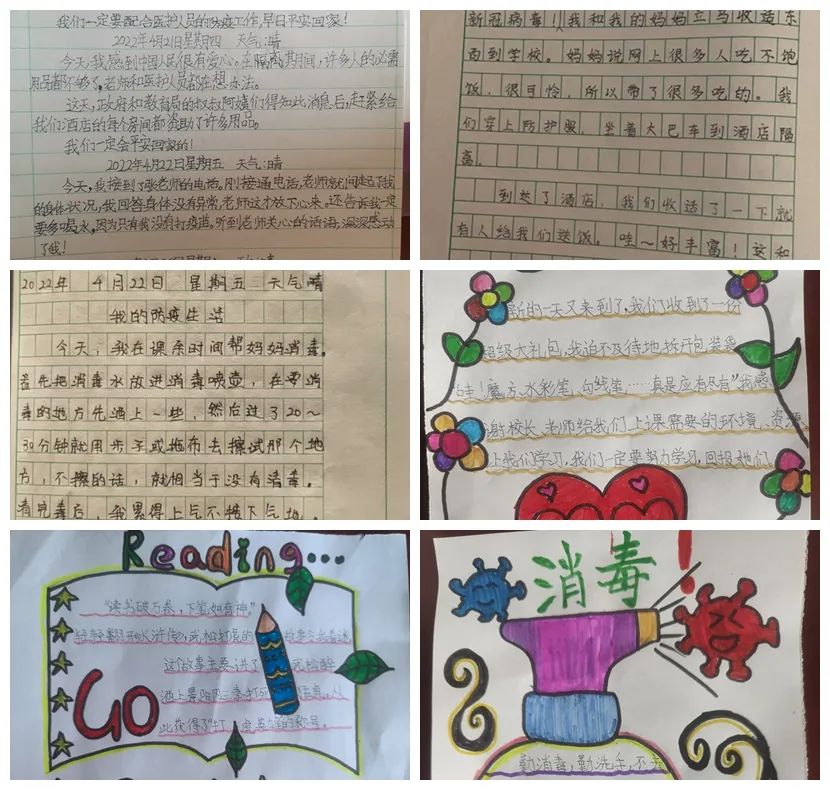 我们一定要配合医护人员的防疫工作,早日平安回家!
2022年4月21日星期四 天气:晴
今天,我感到中国人民很有爱心。在隔离期间,许多人的必需
用品都不够了,老师和医护人员都在想办法。
这天,政府和教育局的叔叔阿姨们得知此消息后,赶紧给
我们酒店的每个房间都资助了许多用品。
我们一定会平安回家的!
2022年4月22日星期五 天气:晴
今天,我接到了张老师的电话。刚接通电话,老师就询问起了我
的身体状况,我回答身体没有异常,老师这才放下心来。还告诉我一定
要多喝水。因为只有我没有打疫苗。听到老师关心的话语,深深感动
了我!
新冠病毒!我和我的妈妈立马收适东
西到学校。妈妈说网上很多人吃不饱
饭,很可怜,所以带了很多吃的。我
们穿上防护服,坐着大巴车到酒店隔
离。
到达了酒店,我们收适了一下就
有人给我们送饭。哇~好丰富!这和
2022年 4月22日 星期五 天气晴
我的防疫生活
今天,我在课余时间帮妈妈消毒。
首先把消毒水放进消毒喷壶,在要消
毒的地方先洒上一些,然后过了20~
30分钟就用步子或拖布去擦试那个地
方,不擦的话,就相当于没有消毒。
消完毒后,我累得上气不接下气地。
新的一天又来到了,我们收到了一份
超级大礼包,我迫不及待地拆开包装袋
"哇!魔方、水彩笔、勾线笔……真是应有尽有"我感
谢校长、老师给我们上课需要的环境、资源
让我们学习,我们一定要努力学习,回报她们
Reading...
"读书破万卷,下笔如有神"
轻轻翻开《水浒传》,武松打虎的 故事令我着迷
这个故事主要讲了 武松醉
酒上景阳冈三拳打死 猛虎。从
此获得了"打 虎英雄"的称号。
GO
消毒!
勤消毒,勤洗手,不去